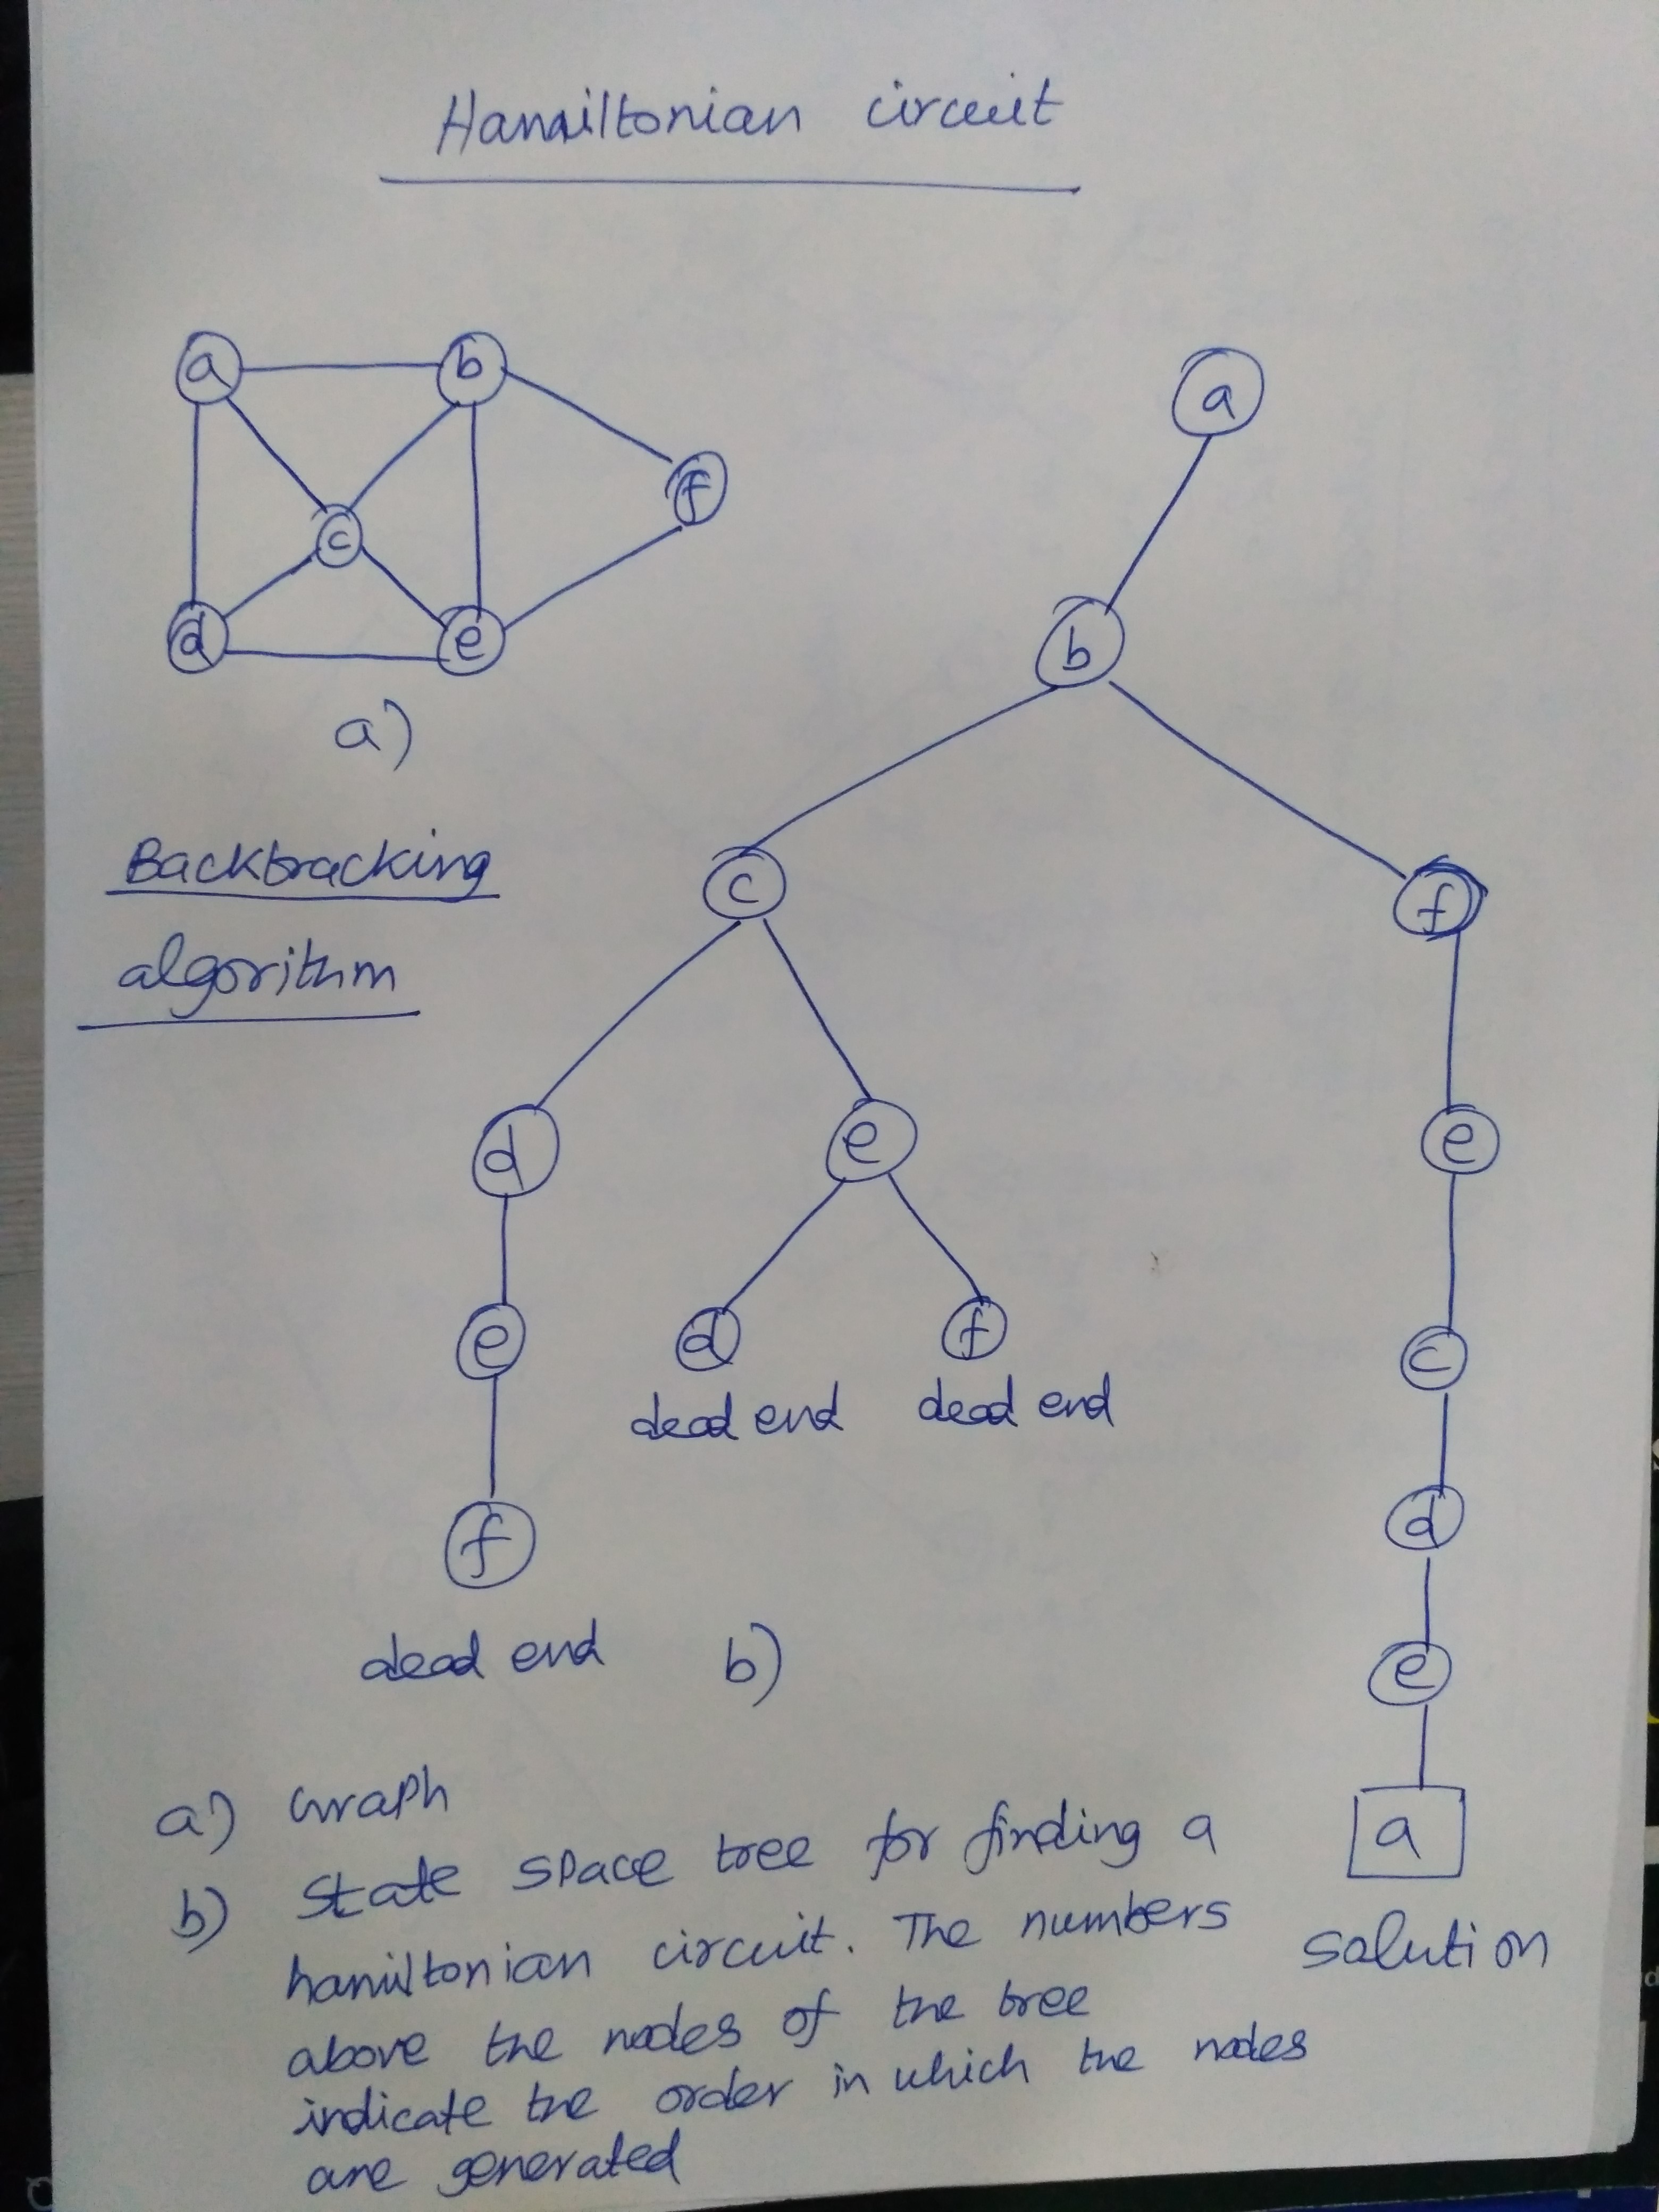 Hamiltonian circuit
a b
f
c
d e
a)
Backtracking
algorithm
a
b
c f
d e e
e d f c
dead end dead end
f d
dead end b) e
a
solution
a) Graph
b) State space tree for finding a
hamiltonian circuit. The numbers
above the nodes of the tree
indicate the order in which the nodes
are generated